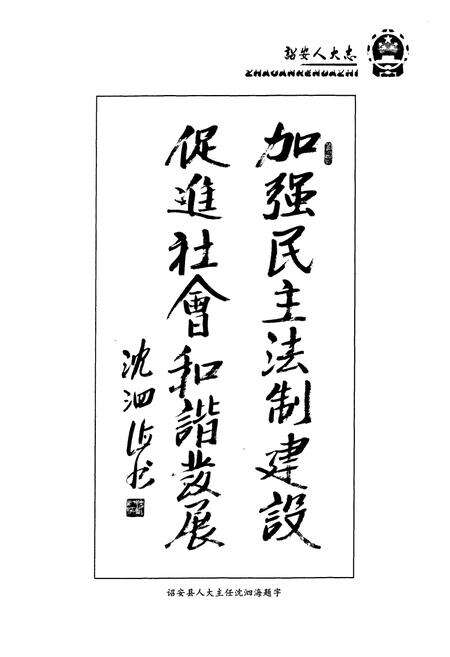 诏安人大志
ZHAOANRENDAZHI
加强民主法制建設
促進社會和諧發展
沈泗海书
诏安县人大主任沈泗海题字